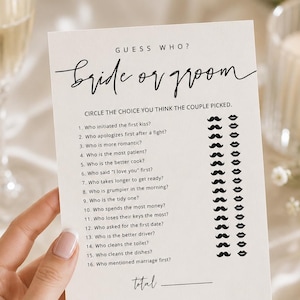 GUESS WHO?
bride or groom
CIRCLE THE CHOICE YOU THINK THE COUPLE PICKED.
1. Who initiated the first kiss?
2. Who apologizes first after a fight?
3. Who is more romantic?
4. Who is the most patient?
5. Who is the better cook?
6. Who said "I love you" first?
7. Who takes longer to get ready?
8. Who is grumpier in the morning?
9. Who is the tidy one?
10. Who spends the most money?
11. Who loses their keys the most?
12. Who asked for the first date?
13. Who is the better driver?
14. Who cleans the toilet?
15. Who cleans the dishes?
16. Who mentioned marriage first?
total